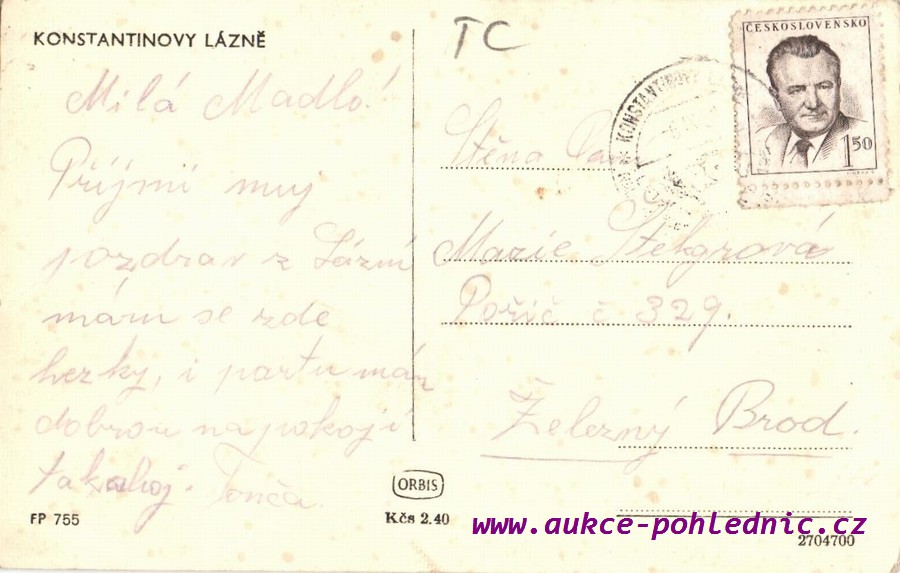 KONSTANTINOVY LÁZNĚ
TC
ČESKOSLOVENSKO
1 50
KONSTANTINOVY
Milá Madlo!
Příjmi muj
pozdrav z Lázní
mám se zde
hezky, i partu mám
dobrou na pokoji
tak ahoj. Tonča.
Ctěna Paní
Marie
Poříč č 329.
Železný Brod.
ORBIS
FP 755
Kčs 2.40
www.aukce-pohlednic.cz
2704700